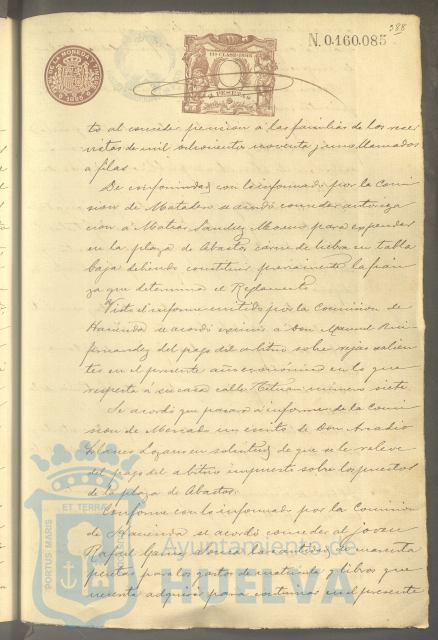 388
N. 0.160.085
11ª CLASE 1895
PESETAS
1895
to al conceder pension á las familias de los reser
vistas de mil ochocientos noventa y uno llamados
á filas.
De conformidad con lo informado por la Comi
sion de Matadero se acordó conceder autoriza
cion á Matias Sanchez Moreno para expender
en la plaza de Abastos carne de hebra en tabla
baja debiendo constituir previamente la fian
za que determina el Reglamento.
Visto el informe emitido por la Comision de
Hacienda se acordó eximir á Don Manuel Ruiz
Fernandez del pago del arbitrio sobre rejas salien
tes en el presente año económico en lo que
respecta á su casa calle Tetuan número siete.
Se acordó que pasara á informe de la Comi
sion de Mercado un escrito de Don Arcadio
Llanes Lozano en solicitud de que se le releve
del pago del arbitrio impuesto sobre los puestos
de la plaza de Abastos.
Conforme con lo informado por la Comision
de Hacienda se acordó conceder al joven
Rafael la cantidad de cuarenta
pesetas para los gastos de matricula y libros que
necesita adquirir para continuar en el presente
PORTUS MARIS ET TERRAE
Ayuntamiento de
HUELVA